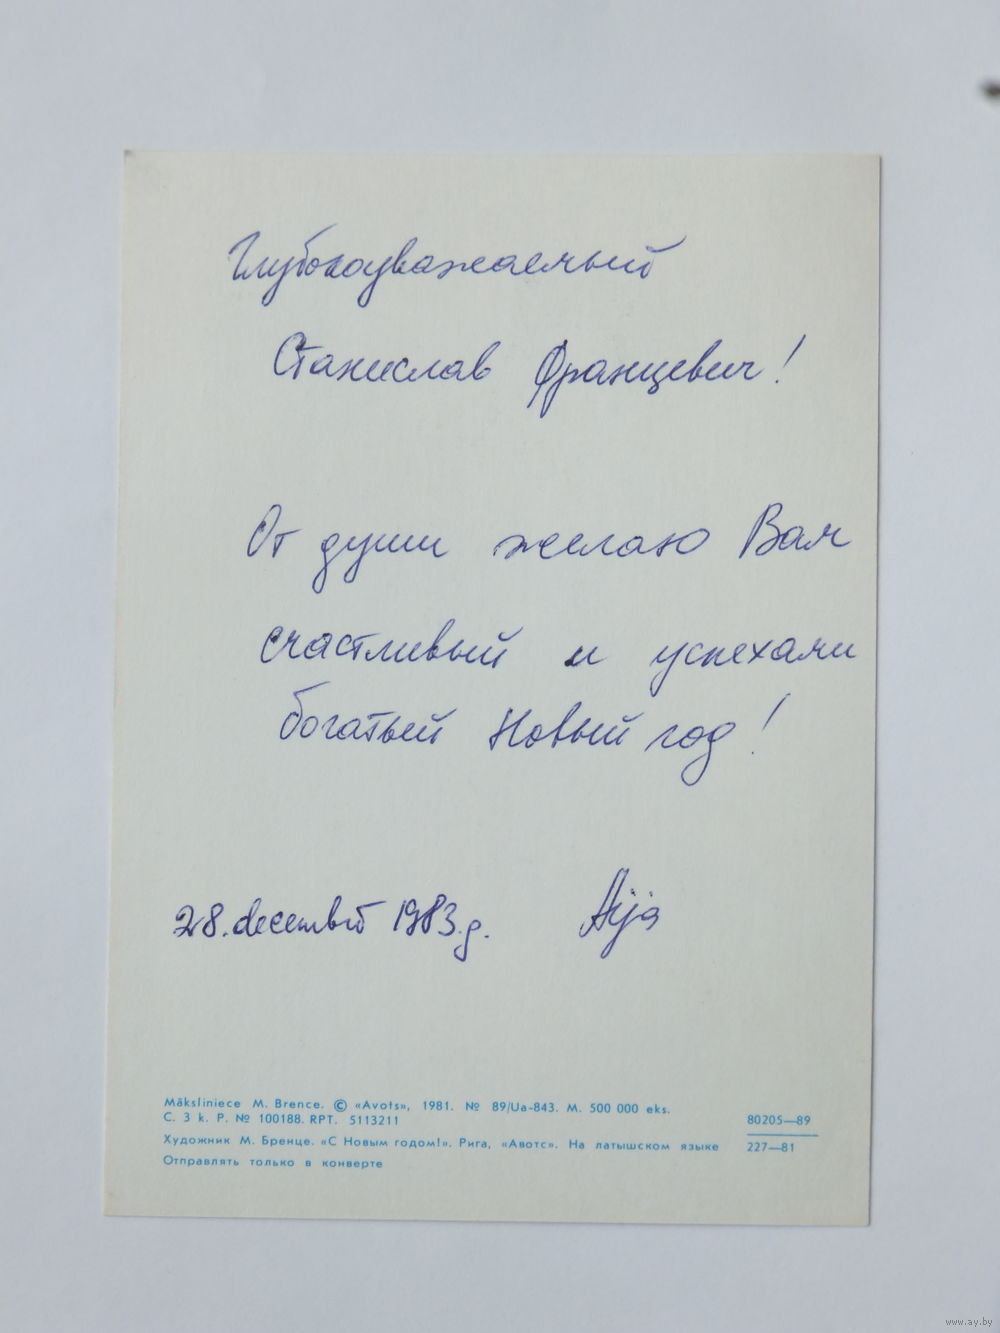 Глубокоуважаемый
Станислав Францевич!
От души желаю Вам
счастливый и успехами
богатый Новый год!
28. decembrī 1983.g. Aija
Māksliniece M. Brence. © «Avots», 1981. № 89/Ua-843. M. 500 000 eks.
C. 3 k. P. № 100188. RPT. 5113211
80205—89
Художник М. Бренце. «С Новым годом!». Рига, «Авотс». На латышском языке
227—81
Отправлять только в конверте
www.ay.by